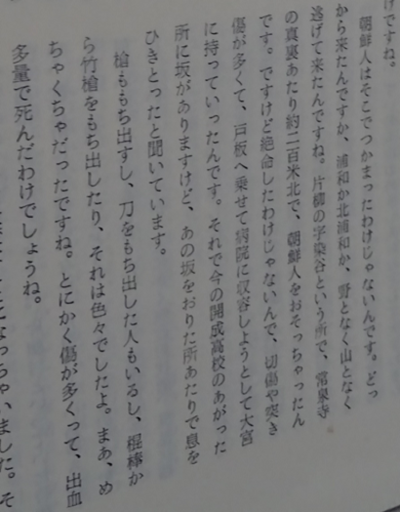 けですね。
朝鮮人はそこでつかまったわけじゃないんです。どっ
から来たんですか、浦和か北浦和か、野となく山となく
逃げて来たんですね。片柳の字染谷という所で、常泉寺
の真裏あたり約二百米北で、朝鮮人をおそっちゃったん
です。ですけど絶命したわけじゃないんで、切傷や突き
傷が多くて、戸板へ乗せて病院に収容しようとして大宮
に持っていったんです。それで今の開成高校のあがった
所に坂がありますけど、あの坂をおりた所あたりで息を
ひきとったと聞いています。
槍ももち出すし、刀をもち出した人もいるし、棍棒か
ら竹槍をもち出したり、それは色々でしたよ。まあ、め
ちゃくちゃだったですね。とにかく傷が多くって、出血
多量で死んだわけでしょうね。
なっちゃいました。そ